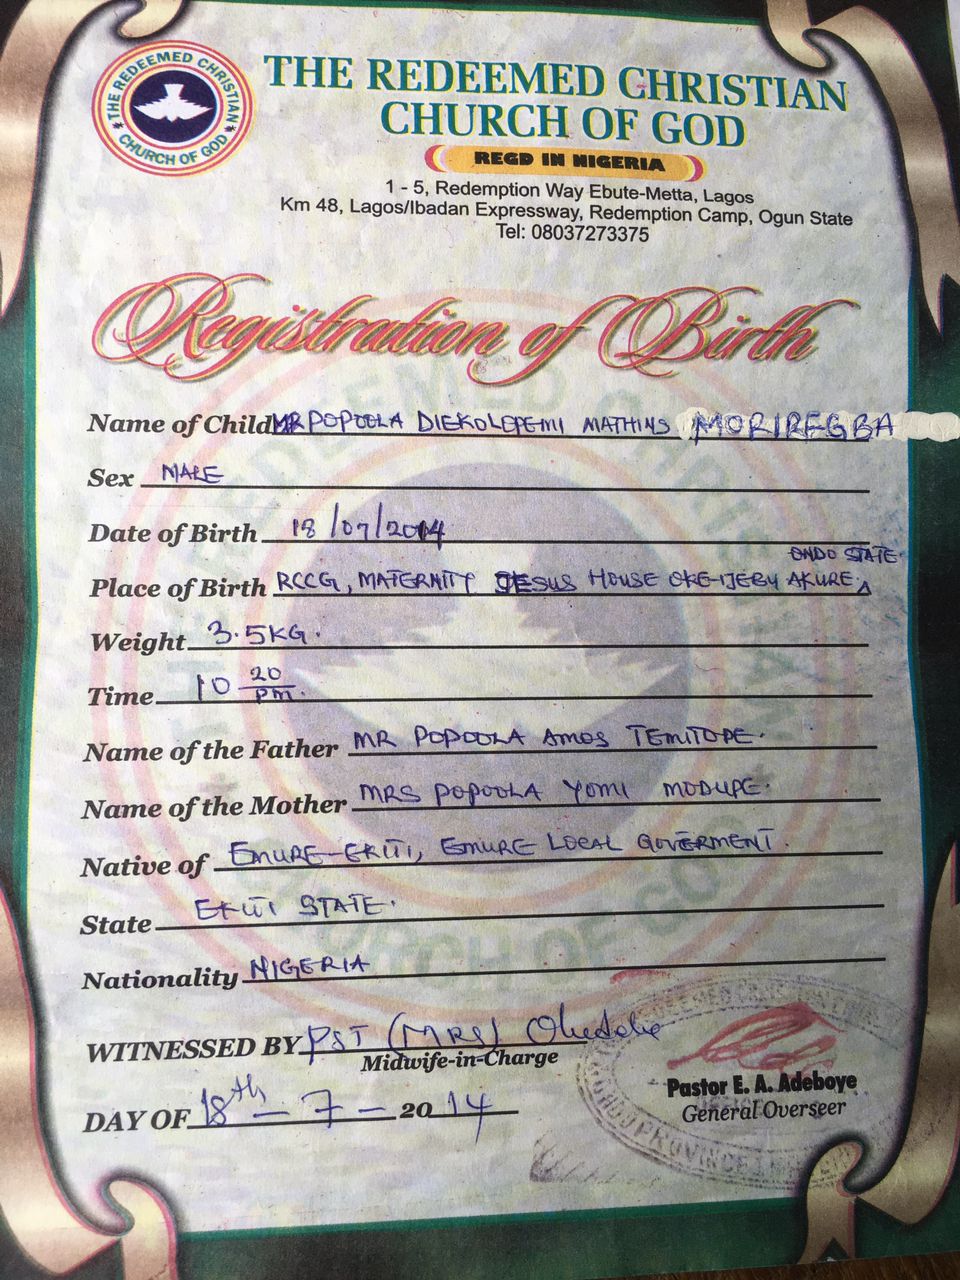 THE REDEEMED CHRISTIAN
CHURCH OF GOD
THE REDEEMED CHRISTIAN CHURCH OF GOD
REGD IN NIGERIA
1 - 5, Redemption Way Ebute-Metta, Lagos
Km 48, Lagos/Ibadan Expressway, Redemption Camp, Ogun State
Tel: 08037273375
Registration of Birth
Name of Child MR POPOOLA DIEKOLOPEMI MATHINS MORIREGBA
Sex MALE
Date of Birth 18/07/2014
ONDO STATE
Place of Birth RCCG, MATERNITY JESUS HOUSE OKE-IJEBU AKURE
Weight 3.5KG.
Time 10 20 PM.
Name of the Father MR POPOOLA AMOS TEMITOPE.
Name of the Mother MRS POPOOLA YOMI MODUPE.
Native of EMURE-EKITI, EMURE LOCAL GOVERMENT.
State EKITI STATE.
Nationality NIGERIA
WITNESSED BY PST (MRS)
Midwife-in-Charge
Pastor E. A. Adeboye
General Overseer
DAY OF 18th - 7 - 2014